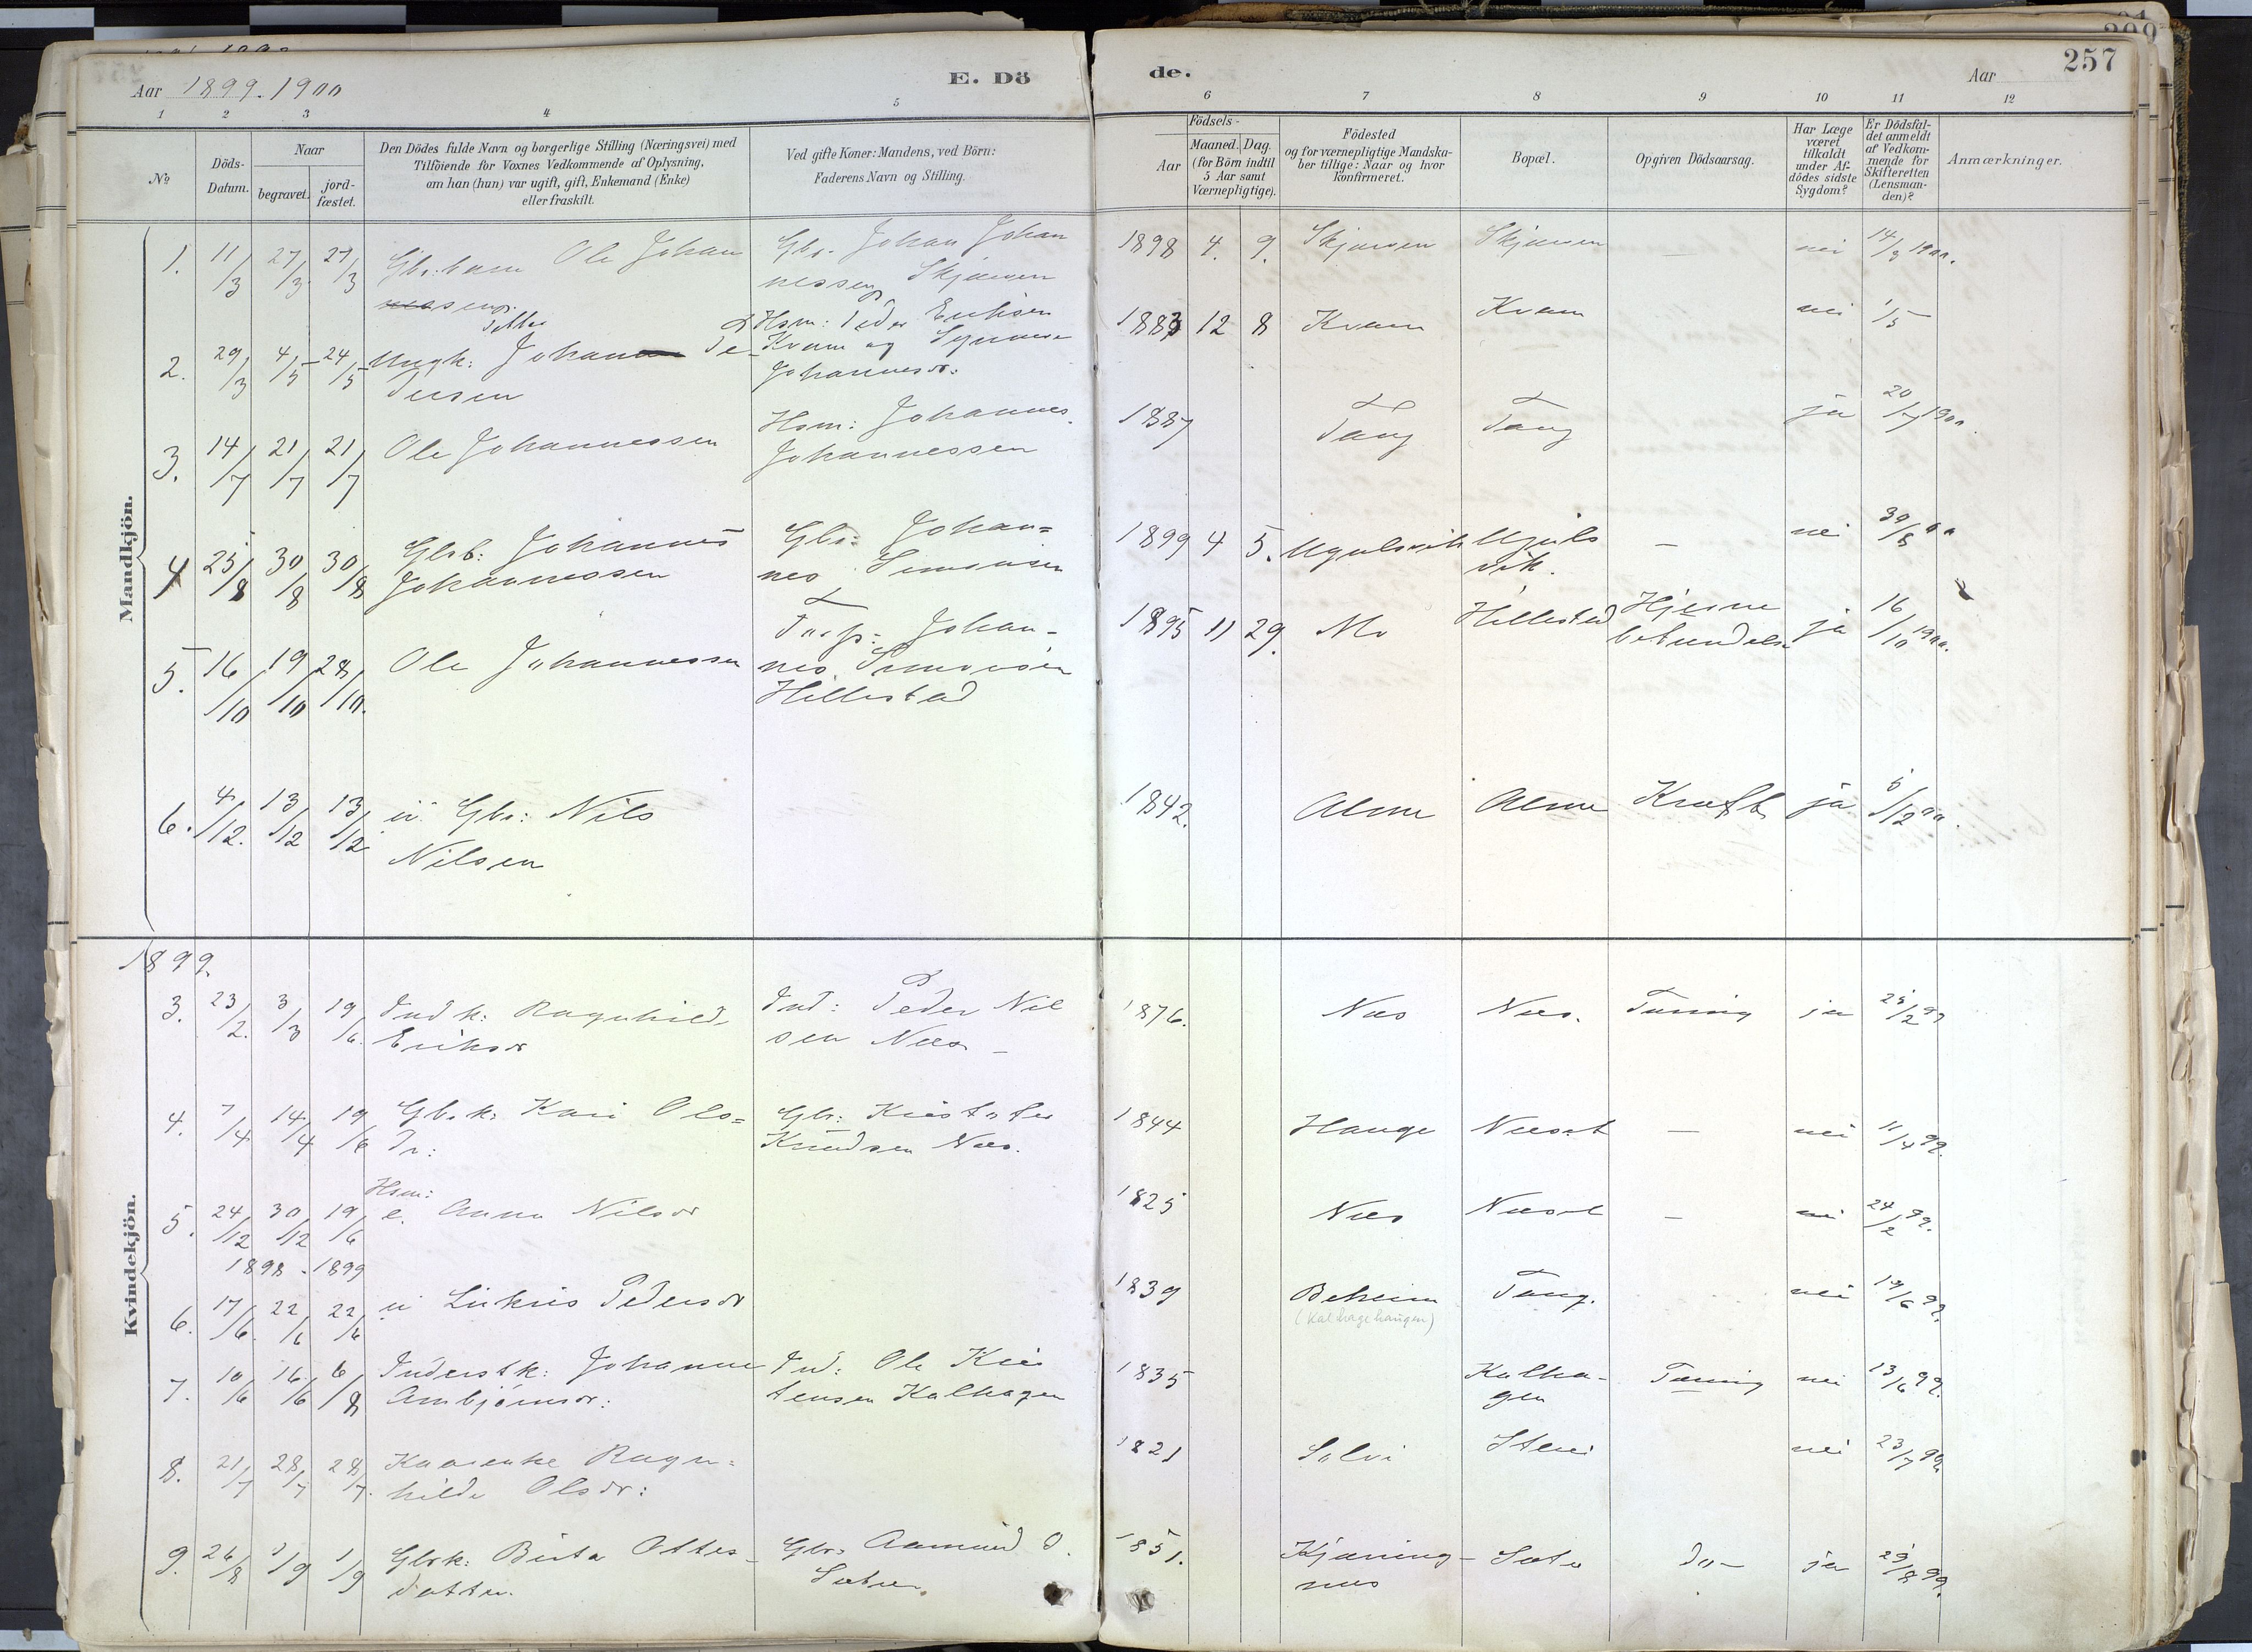 Aar 1899. 1900
E. Dö
de.
Aar
257
1 2 3 4 5 6 7 8 9 10 11 12
No.
Döds-
Datum.
Naar
begravet.
jord-
fæstet.
Den Dödes fulde Navn og borgerlige Stilling (Næringsvei) med
Tilföiende for Voxnes Vedkommende af Oplysning,
om han (hun) var ugift, gift, Enkemand (Enke)
eller fraskilt.
Ved gifte Koner: Mandens, ved Börn:
Faderens Navn og Stilling.
Födsels-
Aar
Maaned. Dag.
(for Börn indtil
5 Aar samt
Værnepligtige).
Födested
og for værnepligtige Mandska-
ber tillige: Naar og hvor
konfirmeret.
Bopæl.
Opgiven Dödsaarsag.
Har Læge
været
tilkaldt
under Af-
dödes sidste
Sygdom?
Er Dödsfal-
det anmeldt
af Vedkom-
mende for
Skifteretten
(Lensman-
den)?
Anmærkninger.
Mandkjön.
1. 11/3 27/3 27/3 Gbr. barn Ole Johan
Gbr. Johan Johan
nessen Skjerven
1898 4. 9. Skjerven Skjerven — nei 14/3 1900.
2. 29/3 4/5 24/5 Ungk: Johan Pe-
dersen
Hsm: Peder Eriksen
Kvam og Synneve
Johannesdr:
1883 12 8 Kvam Kvam — nei 1/5
3. 14/7 21/7 21/7 Ole Johannessen
Hsm: Johannes
Johannessen
1887 Tang Tang — ja 20/7 1900.
4 25/8 30/8 30/8 Gbrb: Johannes
Johannessen
Gbr: Johan=
nes Simonsen
1899 4 5. Ugulsvik Uguls
vik. — nei 30/8 00
5. 16/10 19/10 28/10. Ole Johannessen
Johan-
nes Simonsen
Hillestad
1895 11 29. Mo Hillestad Hjerne
betændelse ja 16/10 1900.
6. 4/12. 13/12 13/12 ú Gbr: Nils
Nilsen
1842. Alme Alme Kræft ja 5/12 00.
Kvindekjön.
1899.
3. 23/2. 3/3 19/6. Indk: Ragnhild
Eriksdr
Ind: Peder Nil
sen Næs —
1876. Næs Næs. Tæring ja 25/2 99
4. 7/4 14/4 19/6 Gbrk: Kari Ols=
dr:
Gbr: Kristofer
Knudsen Næs.
1844 Hauge Næset — nei 11/4 99.
Hsm:
5. 24/12 30/12 19/6 e. Anna Nilsdr
1898 . 1899
1825 Næs Næset — nei 24/2 99.
6. 17/6. 22/6 22/6 ú Lukris Pedersdr
1839 Beheim Tang. nei 19/6 99.
(Kalhagehaugen)
7. 10/6 16/6 6/8 Inderstk: Johanne
Arnbjörnsdr:
Ind: Ole Kris
tensen Kalhagen
1835 Kalha-
gen Tæring nei 13/6 99.
8. 21/7 28/7 28/7. Kaarenke Ragn=
hilde Olsdr:
1821 Solvi nei 23/7 99.
9. 26/8 1/9 1/9 Gbrk: Birta Ottes-
datter.
Gbr: Aamund O.
Sæter.
1851. Kjærring-
næs Sæter Do— ja 29/8 99.